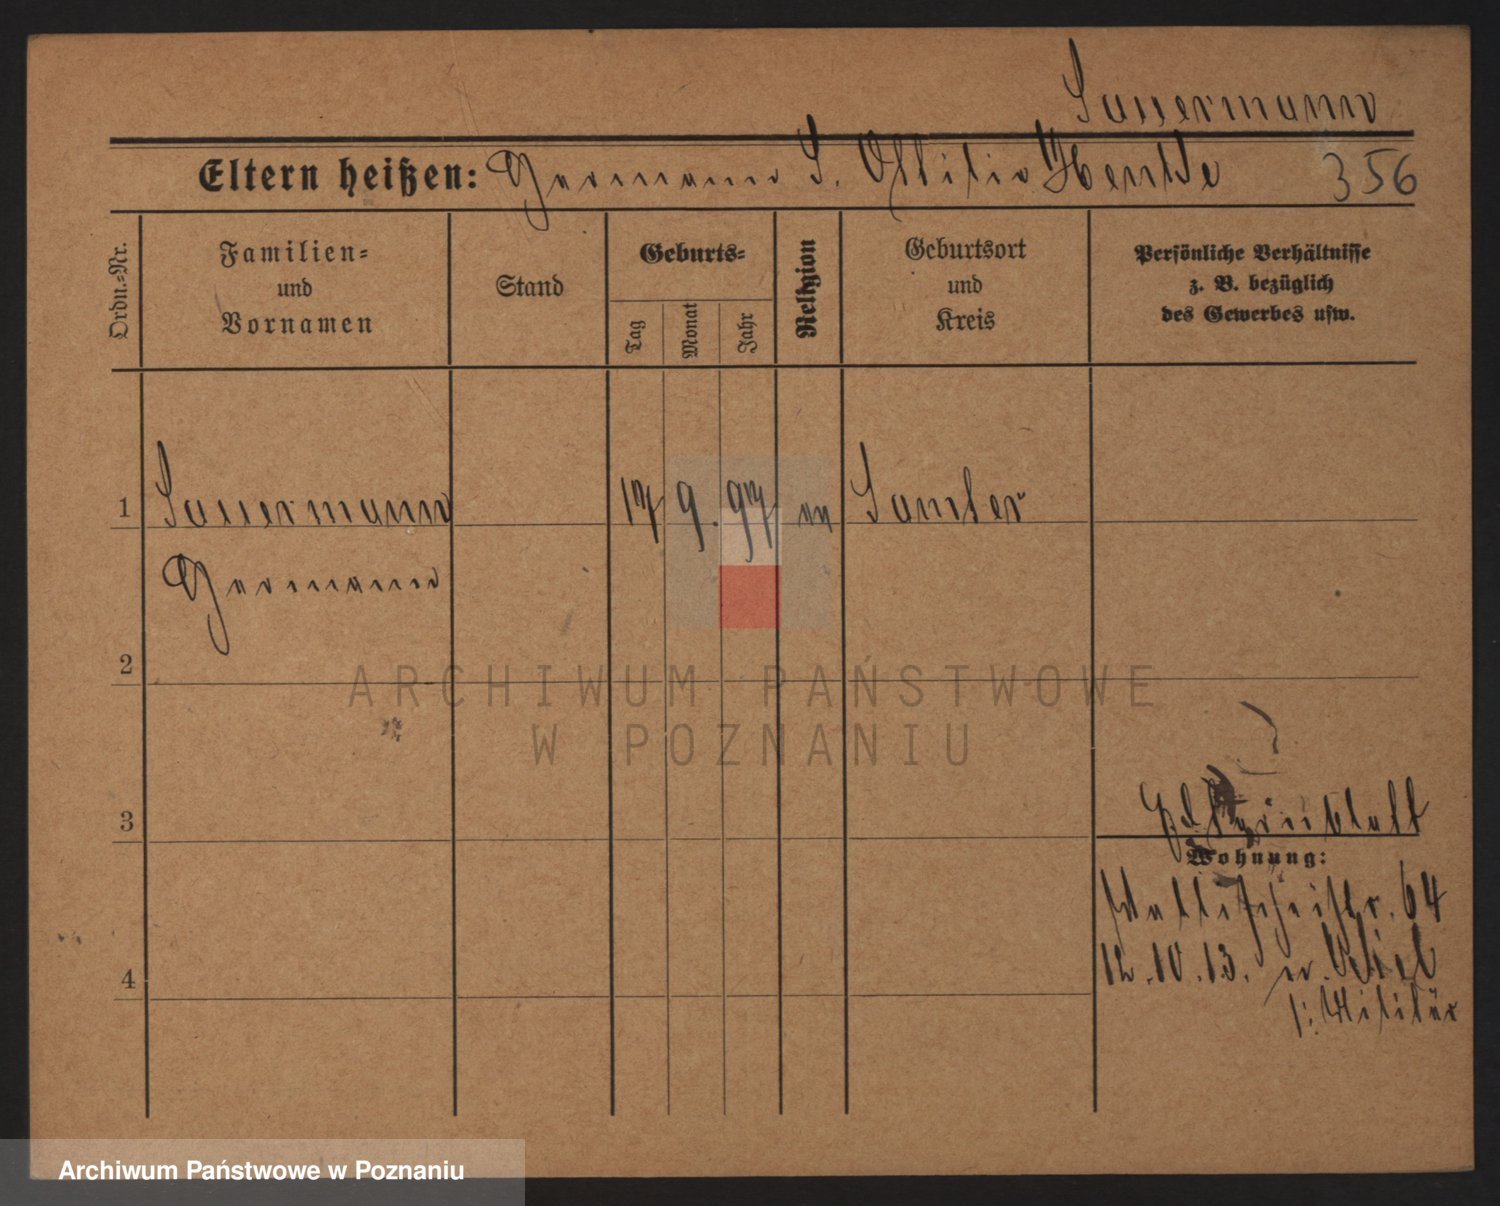 Sauermann
Eltern heißen: Hermann S. Ottilie Henke 356
Ordn.-Nr.
Familien-
und
Vornamen
Stand
Geburts-
Tag
Monat
Jahr
Religion
Geburtsort
und
Kreis
Persönliche Verhältnisse
z. B. bezüglich
des Gewerbes usw.
1 Sauermann 17 9. 97 Samter
Hermann
2
ARCHIWUM PAŃSTWOWE
W POZNANIU
3
Wohnung:
Wallischeistr. 64
12.10.13. n. Kiel
z: Militär
4
Archiwum Państwowe w Poznaniu